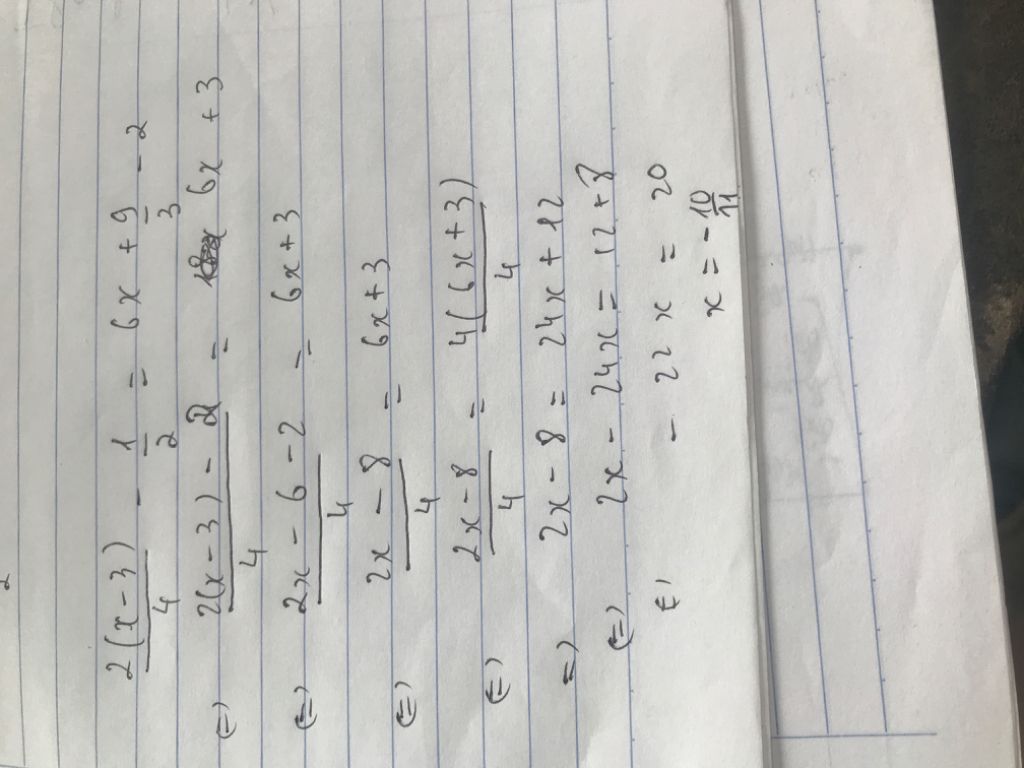 2(x-3)/4 - 1/2 = 6x + 9/3 - 2
⇔ 2(x-3) - 2/4 = 6x + 3
⇔ 2x - 6 - 2/4 = 6x + 3
⇔ 2x - 8/4 = 6x + 3
⇔ 2x - 8/4 = 4(6x + 3)/4
⇒ 2x - 8 = 24x + 12
⇔ 2x - 24x = 12 + 8
⇔ - 22x = 20
x = - 10/11